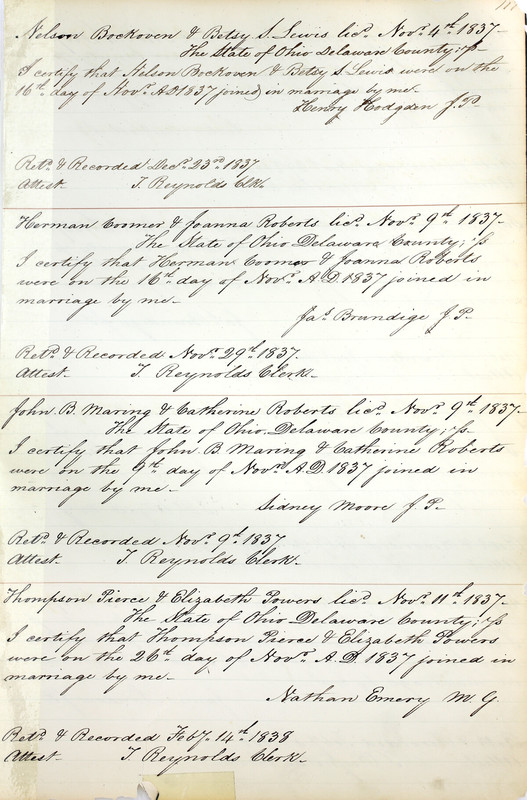 Nelson Bockoven & Betsy S. Lewis licd. Novr. 4th. 1837-
The State of Ohio Delaware County; ss
I certify that Nelson Bockoven & Betsy S Lewis were on the
16th. day of Novr. A D 1837 joined in marriage by me-
Henry Hodgden J. P-
Retd. & Recorded Decr. 23rd. 1837
Attest. T. Reynolds Clk.
Herman Coomer & Joanna Roberts licd. Novr. 9th. 1837-
The State of Ohio Delaware County; ss
I certify that Herman Coomer & Joanna Roberts
were on the 16th. day of Novr. A. D. 1837 joined in
marriage by me-
Jas. Brundige J P-
Retd. & Recorded Novr. 29th. 1837.
Attest- T. Reynolds Clerk-
John. B. Maring & Catherine Roberts licd. Novr. 9th. 1837-
The State of Ohio. Delaware County; ss-
I certify that John. B. Maring & Catherine Roberts
were on the 9th. day of Novr. A. D. 1837 joined in
marriage by me-
Sidney Moore J. P-
Retd. & Recorded Novr. 9th. 1837
Attest. T. Reynolds Clerk-
Thompson Pierce & Elizabeth Powers licd. Novr. 11th. 1837-
The State of Ohio Delaware County; ss
I certify that Thompson Pierce & Elizabeth Powers
were on the 26th. day of Novr. A. D. 1837 joined in
marriage by me-
Nathan Emery M. G.
Retd. & Recorded Feby. 14th. 1838
Attest- T. Reynolds Clerk-